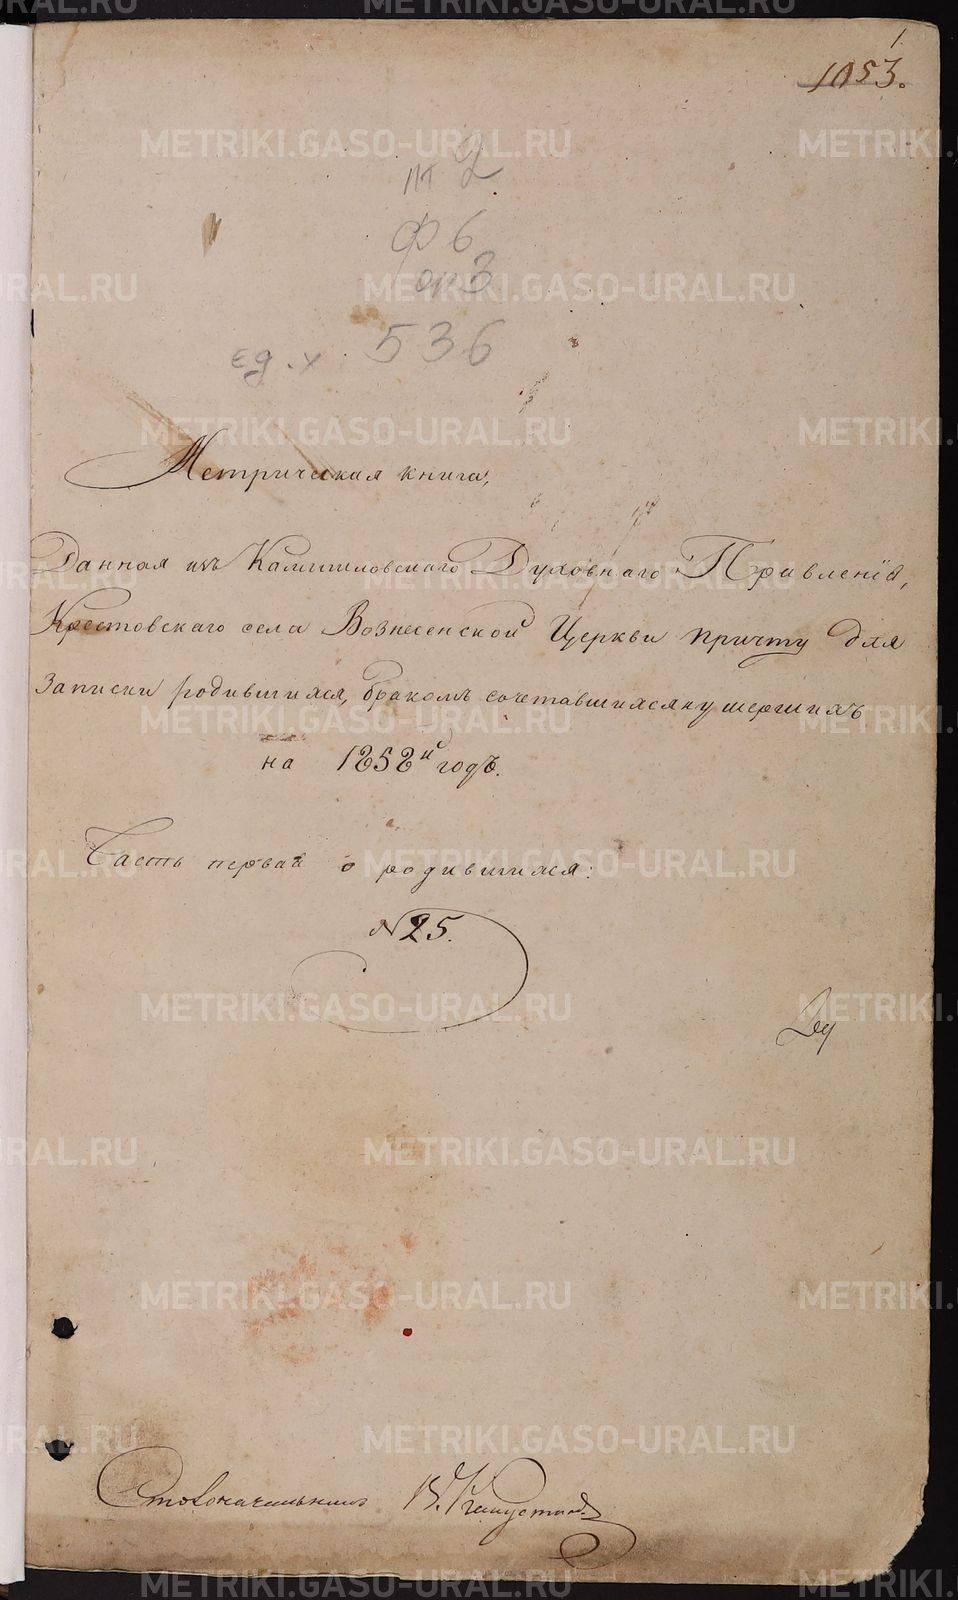 1
1053.
пт 2
ф 6
оп 3
ед. х. 536
Метрическая книга,
Данная изъ Камышловскаго Духовнаго Правленія,
Крестовскаго села Вознесенской Церкви причту для
записки родившихся, бракомъ сочетавшихся и умершихъ
на 1852й годъ.
Часть первая о родившихся:
№ 25.
Столоначальникъ В.
METRIKI.GASO-URAL.RU